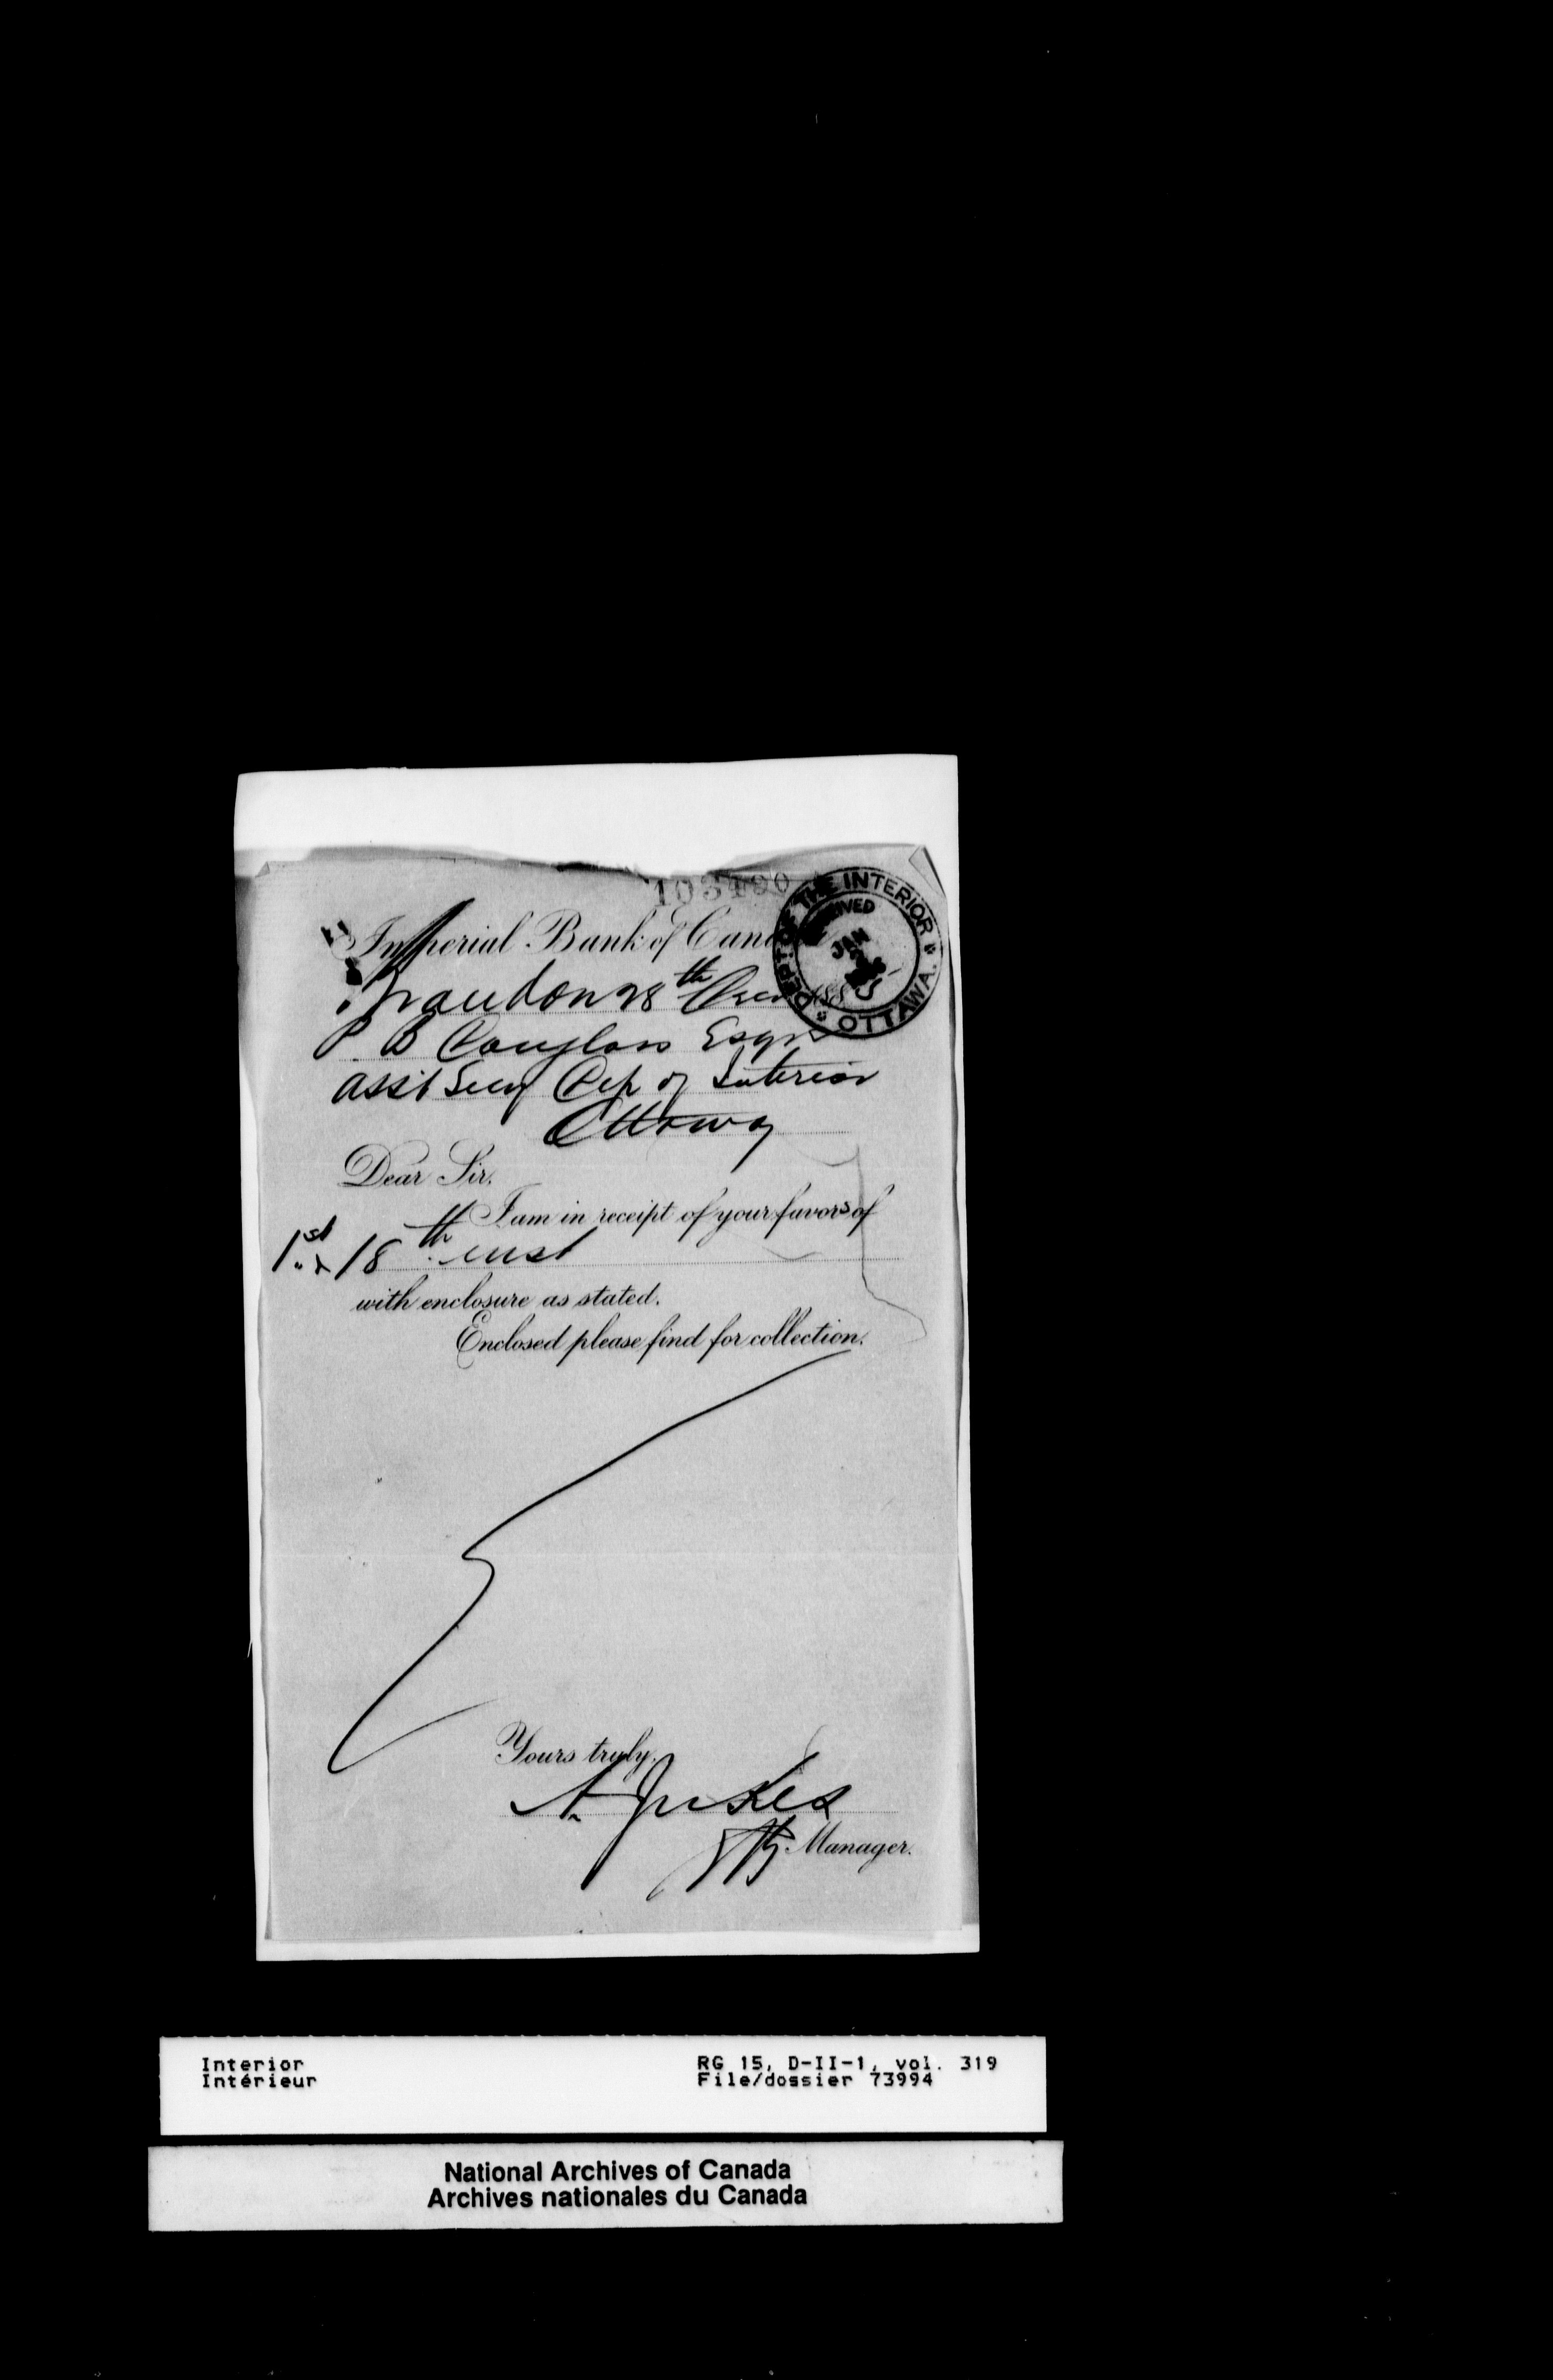 103490
Imperial Bank of Cana
DEPT. OF THE INTERIOR
RECEIVED
JAN
OTTAWA.
Brandon 28th Decr 188
P. B Douglass Esqre
Asst Secy Dep of Interior
Ottawa
Dear Sir,
I am in receipt of your favors of
1st & 18th inst
with enclosure as stated.
Enclosed please find for collection.
Yours truly,
A. Jukes
Manager.
Interior
Intérieur
RG 15, D-II-1, vol. 319
File/dossier 73994
National Archives of Canada
Archives nationales du Canada